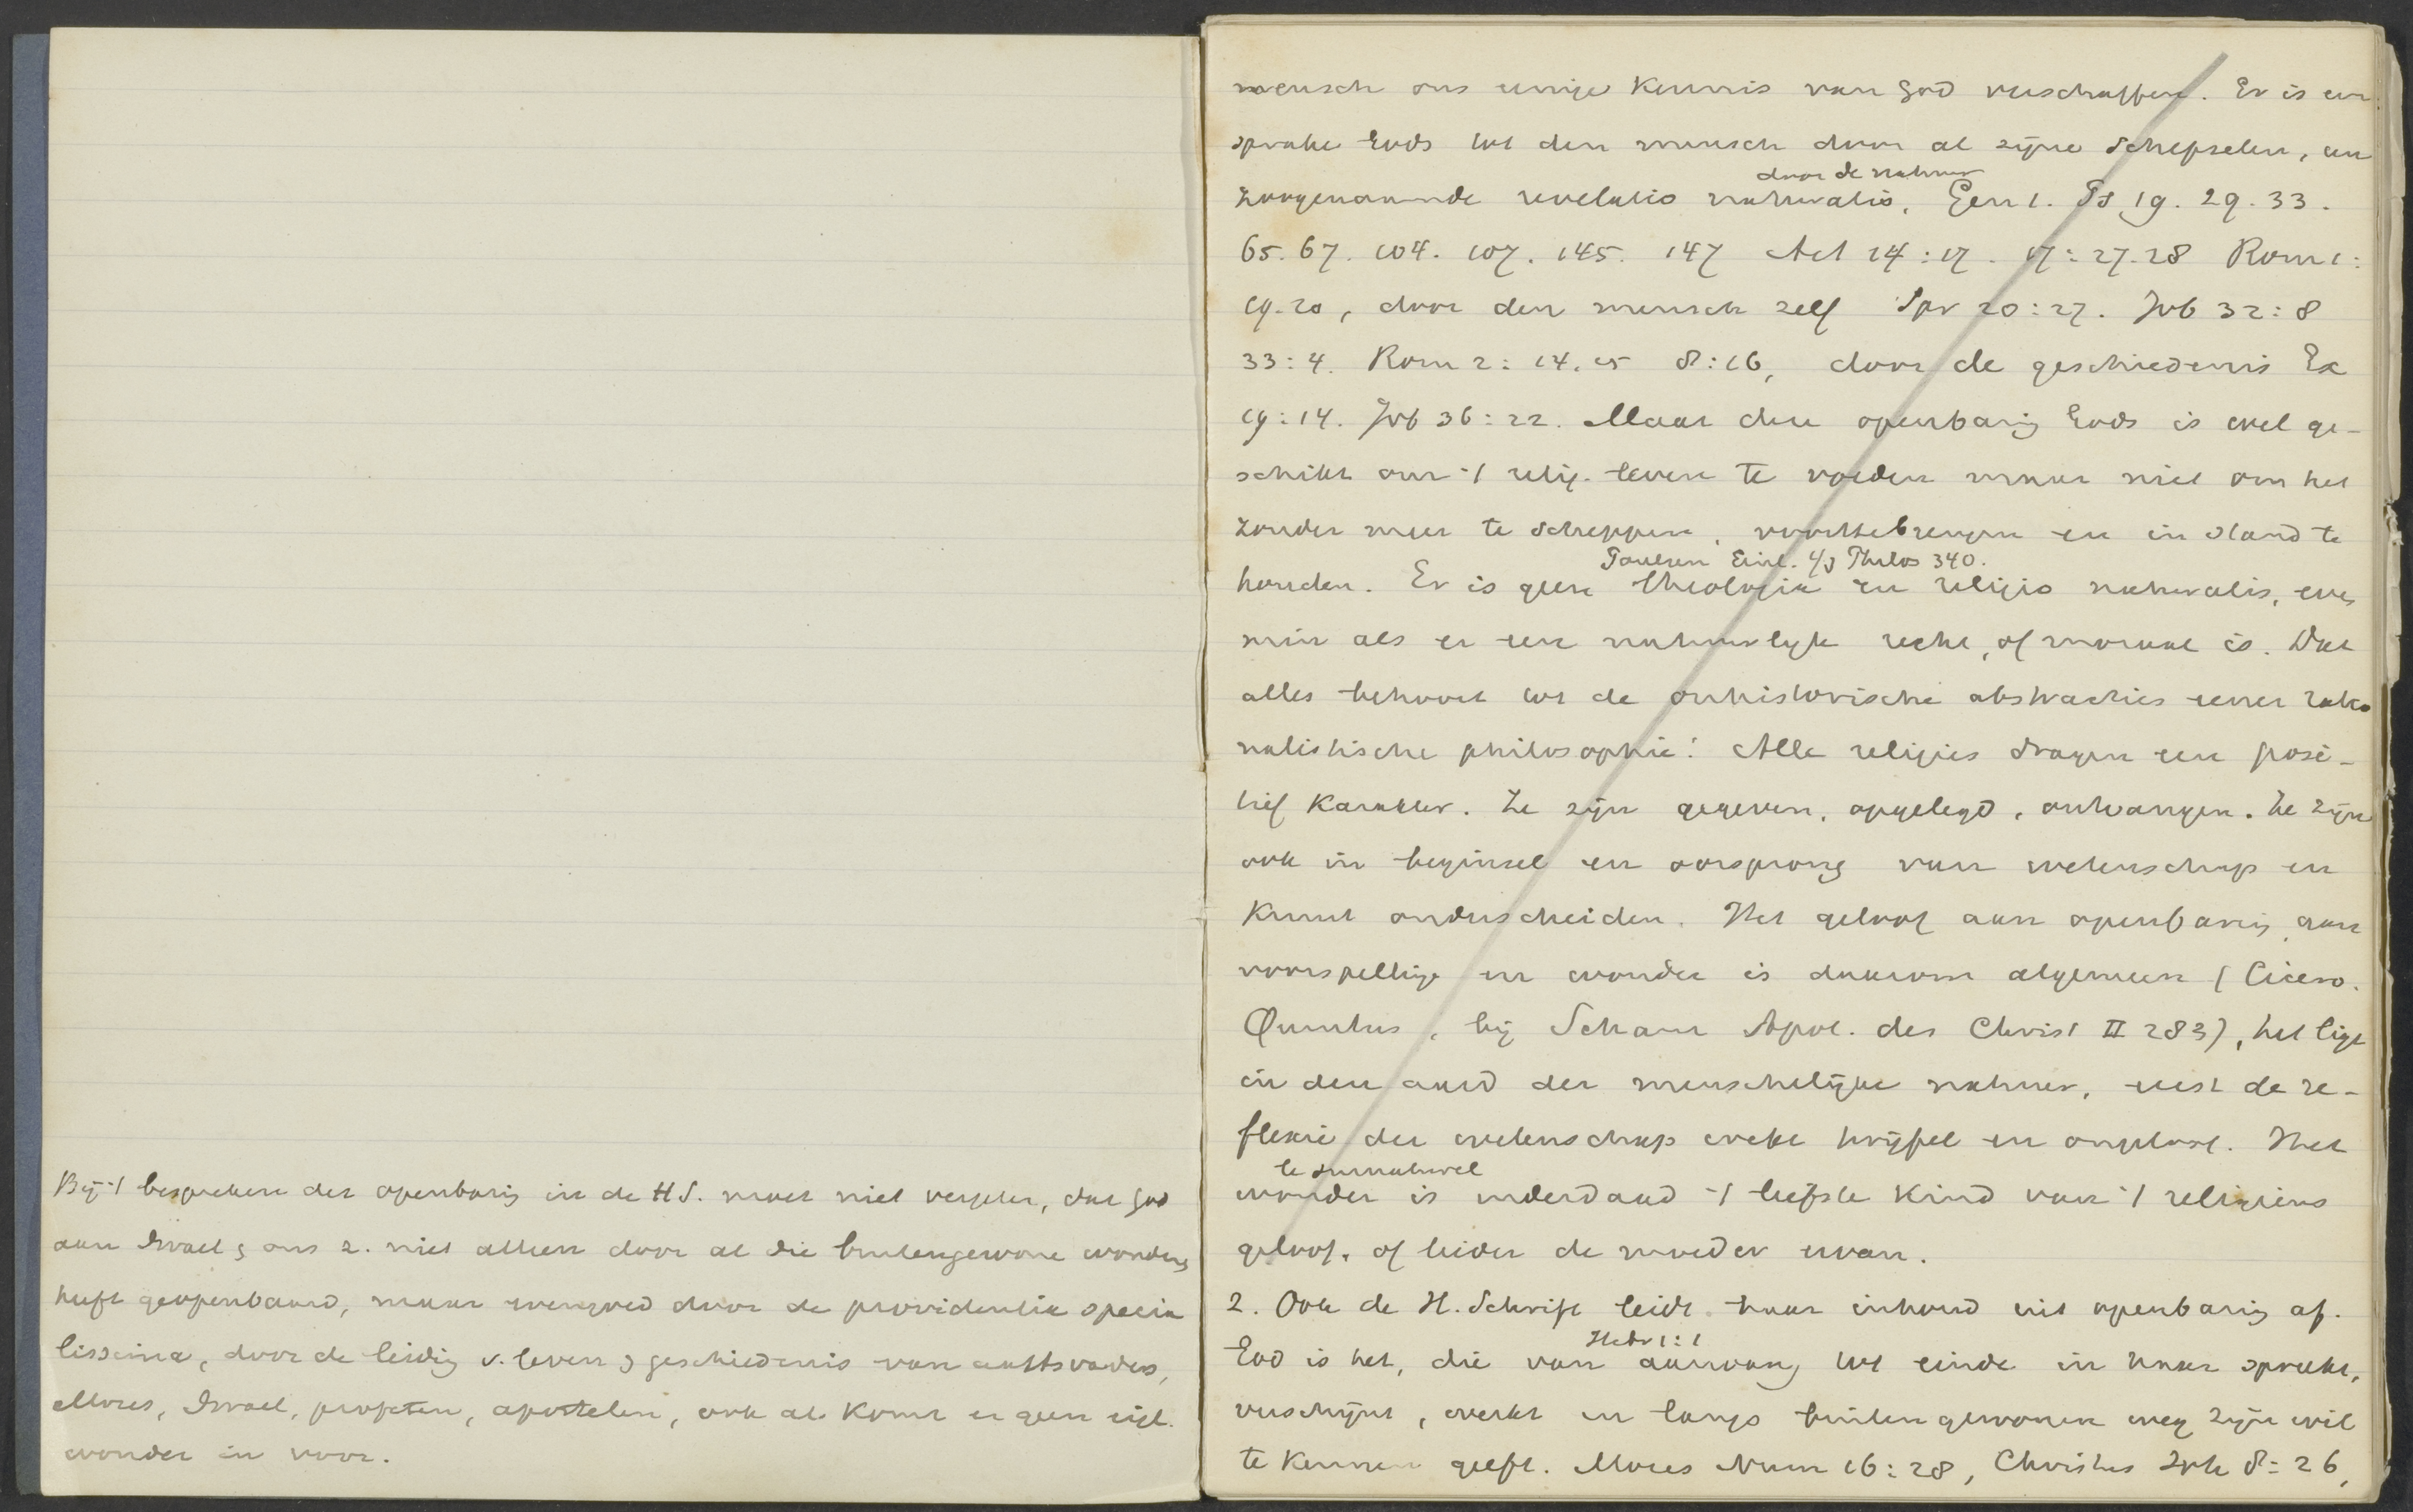 Bij 't bespreken der openbaring in de H S. moet niet vergeten, dat God
aan Israel & ons z. niet alleen door al die buitengewone wonderen
heeft geopenbaard, maar evengoed door de providentia specia
lissima, door de leiding v. leven & geschiedenis van aartsvaders,
Mozes, Israel, profeten, apostelen, ook al komt er geen eigl.
wonder in voor.
mensch ons eenige kennis van God verschaffen. Er is een
sprake Gods tot den mensch door al zijne schepselen, een
door de natuur
zoogenaamde revelatio naturalis, Gen 1. Ps 19. 29. 33.
65. 67. 104. 107. 145. 147 Act 14:17. 17:27.28 Rom 1:
19.20, door den mensch zelf Spr 20:27. Job 32:8
33:4. Rom 2:14.15 8:16, door de geschiedenis Ex
19:14. Job 36:22. Maar deze openbaring Gods is wel ge-
schikt om 't relig. leven te voeden maar niet om het
zonder meer te scheppen, voorttebrengen en in stand te
Paulsen Einl. i/d Philos 340.
houden. Er is geen theologia en religio naturalis, even
min als er een natuurlijk recht, of moraal is. Dat
alles behoort tot de onhistorische abstracties eener ratio
nalistische philosophie! Alle religies dragen een posi-
tief karakter. Ze zijn gegeven, opgelegd, ontvangen. Ze zijn
ook in beginsel en oorsprong van wetenschap en
kunst onderscheiden. Het geloof aan openbaring, aan
voorspelling en wonder is daarom algemeen (Cicero.
Quintus, bij Schanz Apol. des Christ II 283), het ligt
in den aard der menschelijke natuur, eerst de re-
flexie der wetenschap wekt twijfel en ongeloof. Het
le surnaturel
wonder is inderdaad 't liefste kind van 't religieus
geloof, of liever de moeder ervan.
2. Ook de H. Schrift leidt haar inhoud uit openbaring af.
Hebr 1:1
God is het, die van aanvang tot einde in haar spreekt,
verschijnt, werkt en langs buitengewonen weg zijn wil
te kennen geeft. Mozes Num 16:28, Christus Joh 8:26,